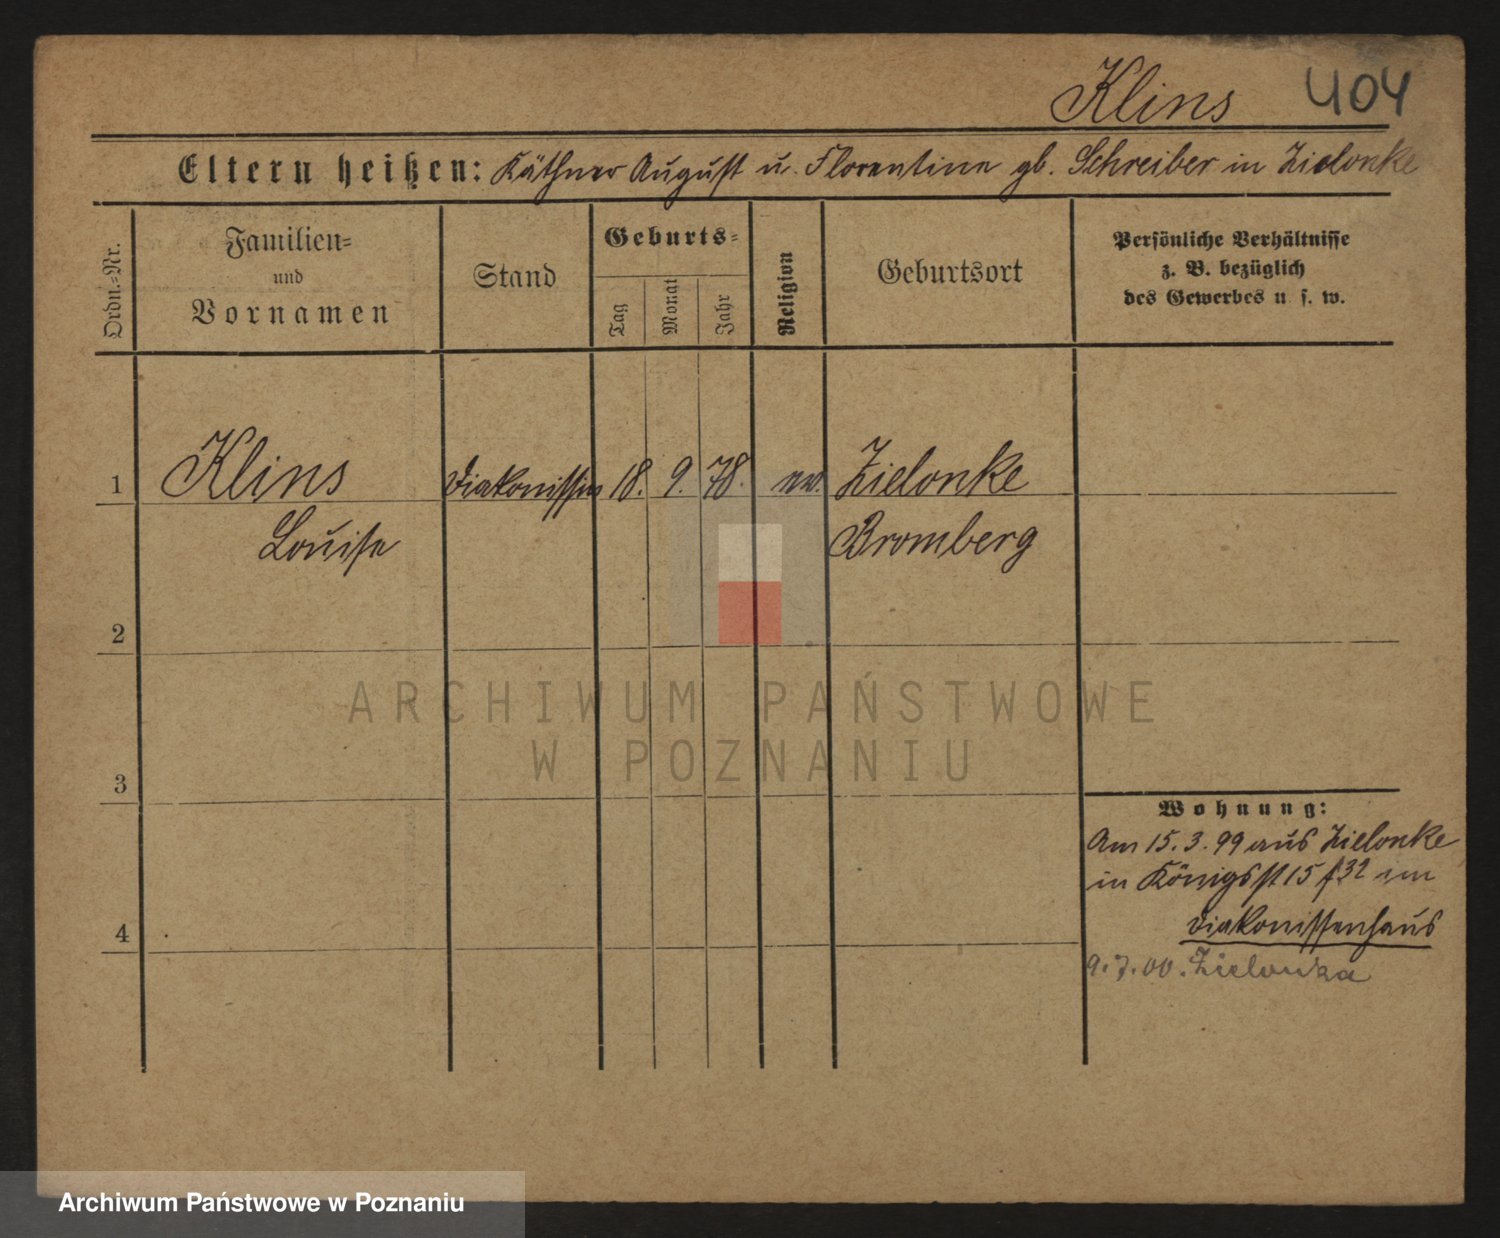 Klins 404
Eltern heißen: Käthner August u. Florentine gb. Schreiber in Zielonke
Ordn.-Nr.
Familien-
und
Vornamen
Stand
Geburts-
Tag
Monat
Jahr
Religion
Geburtsort
Persönliche Verhältnisse
z. B. bezüglich
des Gewerbes u. s. w.
1 Klins Diakonissin 18. 9. 78. ev. Zielonke
Louise Bromberg
2
ARCHIWUM PAŃSTWOWE
W POZNANIU
3
Wohnung:
Am 15.3.99 aus Zielonke
in Königsst 15 f 32 im
4 Diakonissenhaus
9.7.00. Zielonka
Archiwum Państwowe w Poznaniu